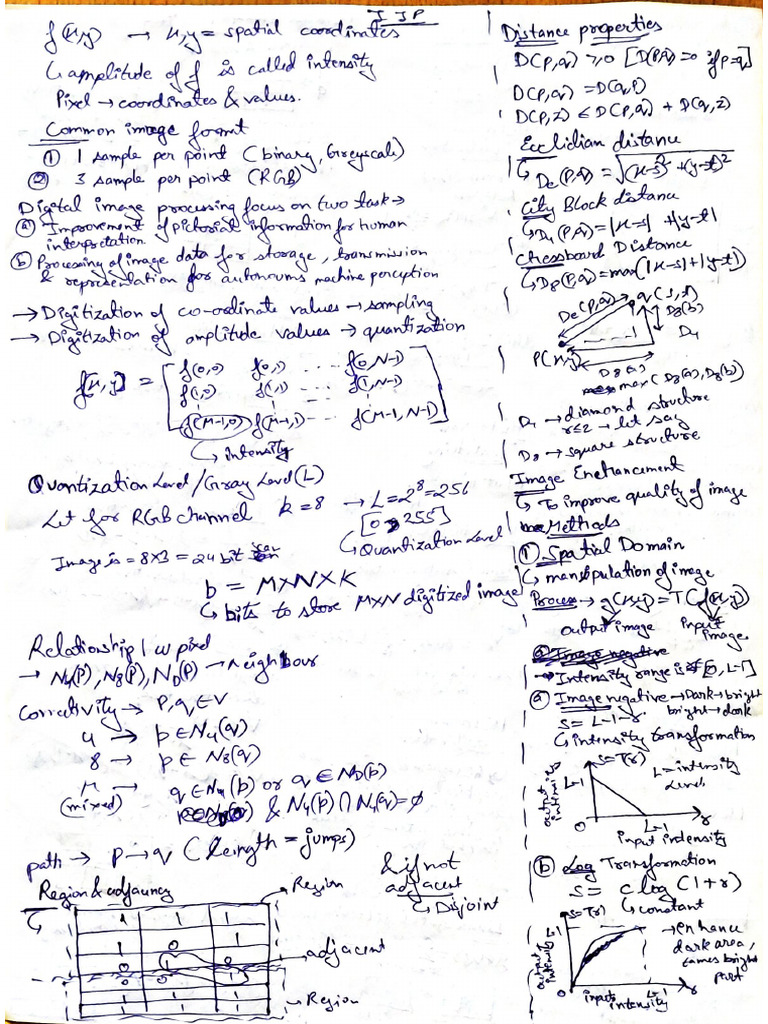 IIP
f(x,y) → x,y = spatial coordinates
↳ amplitude of f is called intensity
Pixel → coordinates & values.
Common image format
① 1 sample per point (binary, Greyscale)
② 3 sample per point (RGB)
Digital image processing focus on two task→
ⓐ Improvement of pictorial information for human
interpretation
ⓑ Processing of image data for storage, transmission
& representation for autonoums machine perception
→ Digitization of co-ordinate values → sampling
→ Digitization of amplitude values → quantization
f[x,y] = [ f(0,0) f(0,1) ... f(0,N-1)
f(1,0) f(1,1) ... f(1,N-1)
f(M-1,0) f(M-1,1) ... f(M-1,N-1) ]
↳ intensity
Quantization Level/Gray Level (L)
Let for RGB channel k = 8 → L = 2^8 = 256
[0 → 255]
↳ Quantization Level
Image is = 8×3 = 24 bit
b = M×N×K
↳ bits to store M×N digitized image
Relationship b/w pixel
→ N4(P), N8(P), ND(P) → neighbour
Connectivity → P, q ∈ V
4 → p ∈ N4(q)
8 → p ∈ N8(q)
m → q ∈ N4(p) or q ∈ ND(p)
(mixed) & N4(p) ∩ N4(q) = ∅
path → p → q (length = jumps)
Region & adjacency
& if not
adjacent
↳ Disjoint
Region
adjacent
Region
Distance properties
D(P,q) ≥ 0 [D(P,q) = 0 if p=q]
D(P,q) = D(q,P)
D(P,z) ≤ D(P,q) + D(q,z)
Ecclidian distance
↳ De(P,q) = √(x-s)² + (y-t)²
City Block distance
↳ D4(P,q) = |x-s| + |y-t|
Chessboard Distance
↳ D8(P,q) = max(|x-s| + |y-t|)
De(P,q) q(s,t)
D8(b)
D4
P(x,y)
D8(a)
max(D8(a), D8(b))
D4 → diamond structure
r≤2 → let say
D8 → square structure
Image Enhancement
↳ To improve quality of image
Methods
① Spatial Domain
↳ manipulation of image
Process → g(x,y) = T(f(x,y))
output image input image
Intensity range is [0, L-1]
ⓐ Image negative → Dark → bright
bright → dark
s = L-1-r
↳ intensity transformation
s=T(r)
L = intensity
Level
L-1
output intensity
0 L-1 r
input intensity
ⓑ Log Transformation
s = c log(1+r)
↳ constant
s=T(r)
L-1
output intensity
→ enhance
dark area,
bright
part
0 L-1 r
input intensity